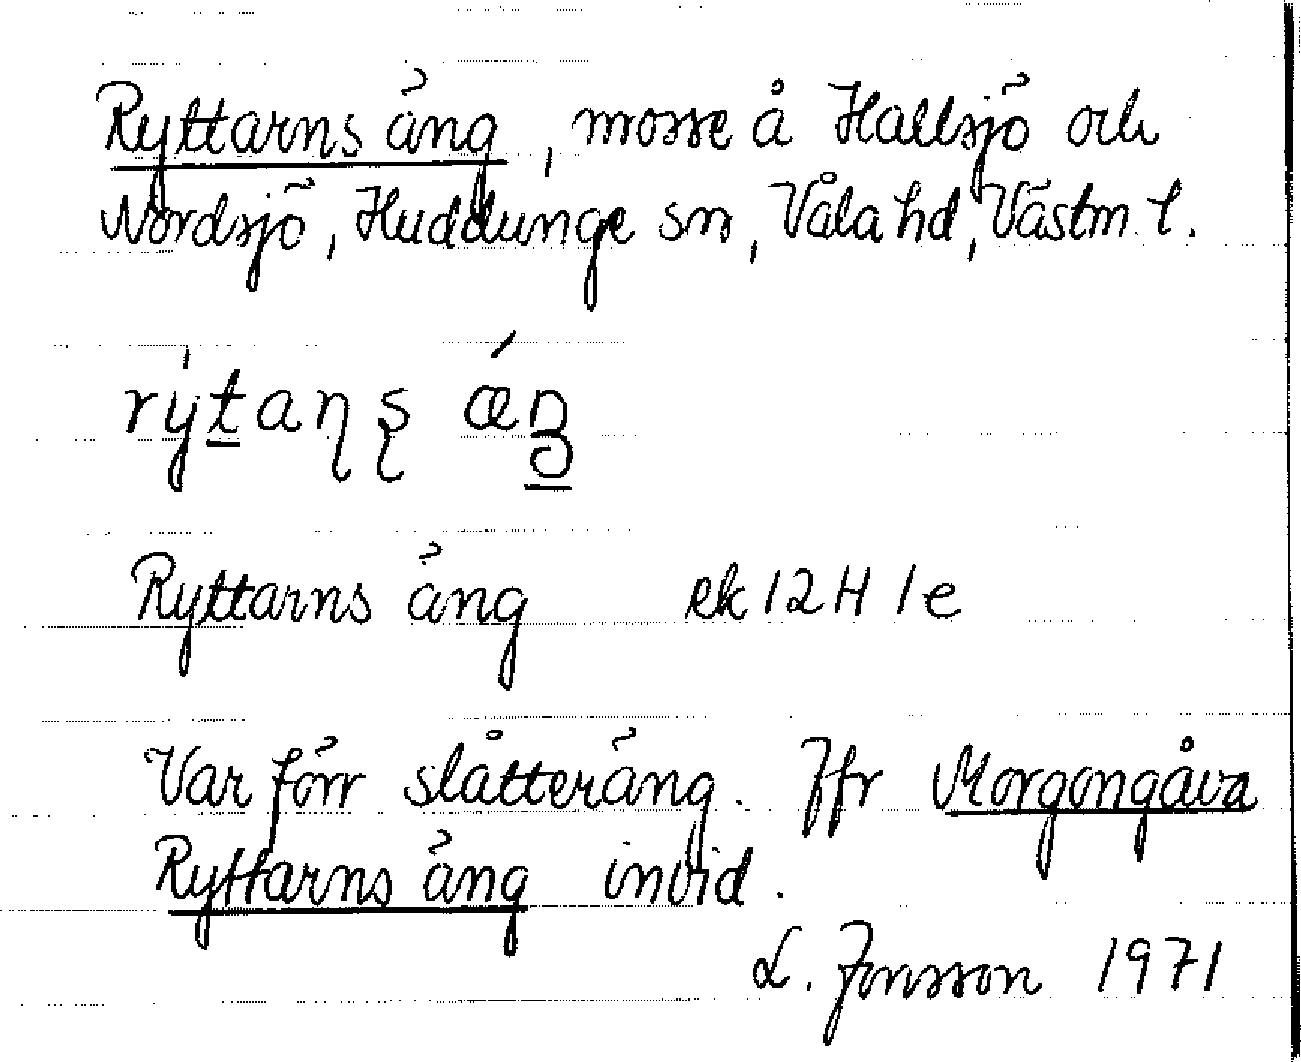 Ryttarns äng, mosse å Hallsjö och
Nordsjö, Huddunge sn, Våla hd, Västm l.
rýtaɳʂ ǽŋ
Ryttarns äng ek 12H 1e
Var förr slåtteräng. Jfr Morgongåva
Ryttarns äng invid.
L. Jonsson 1971